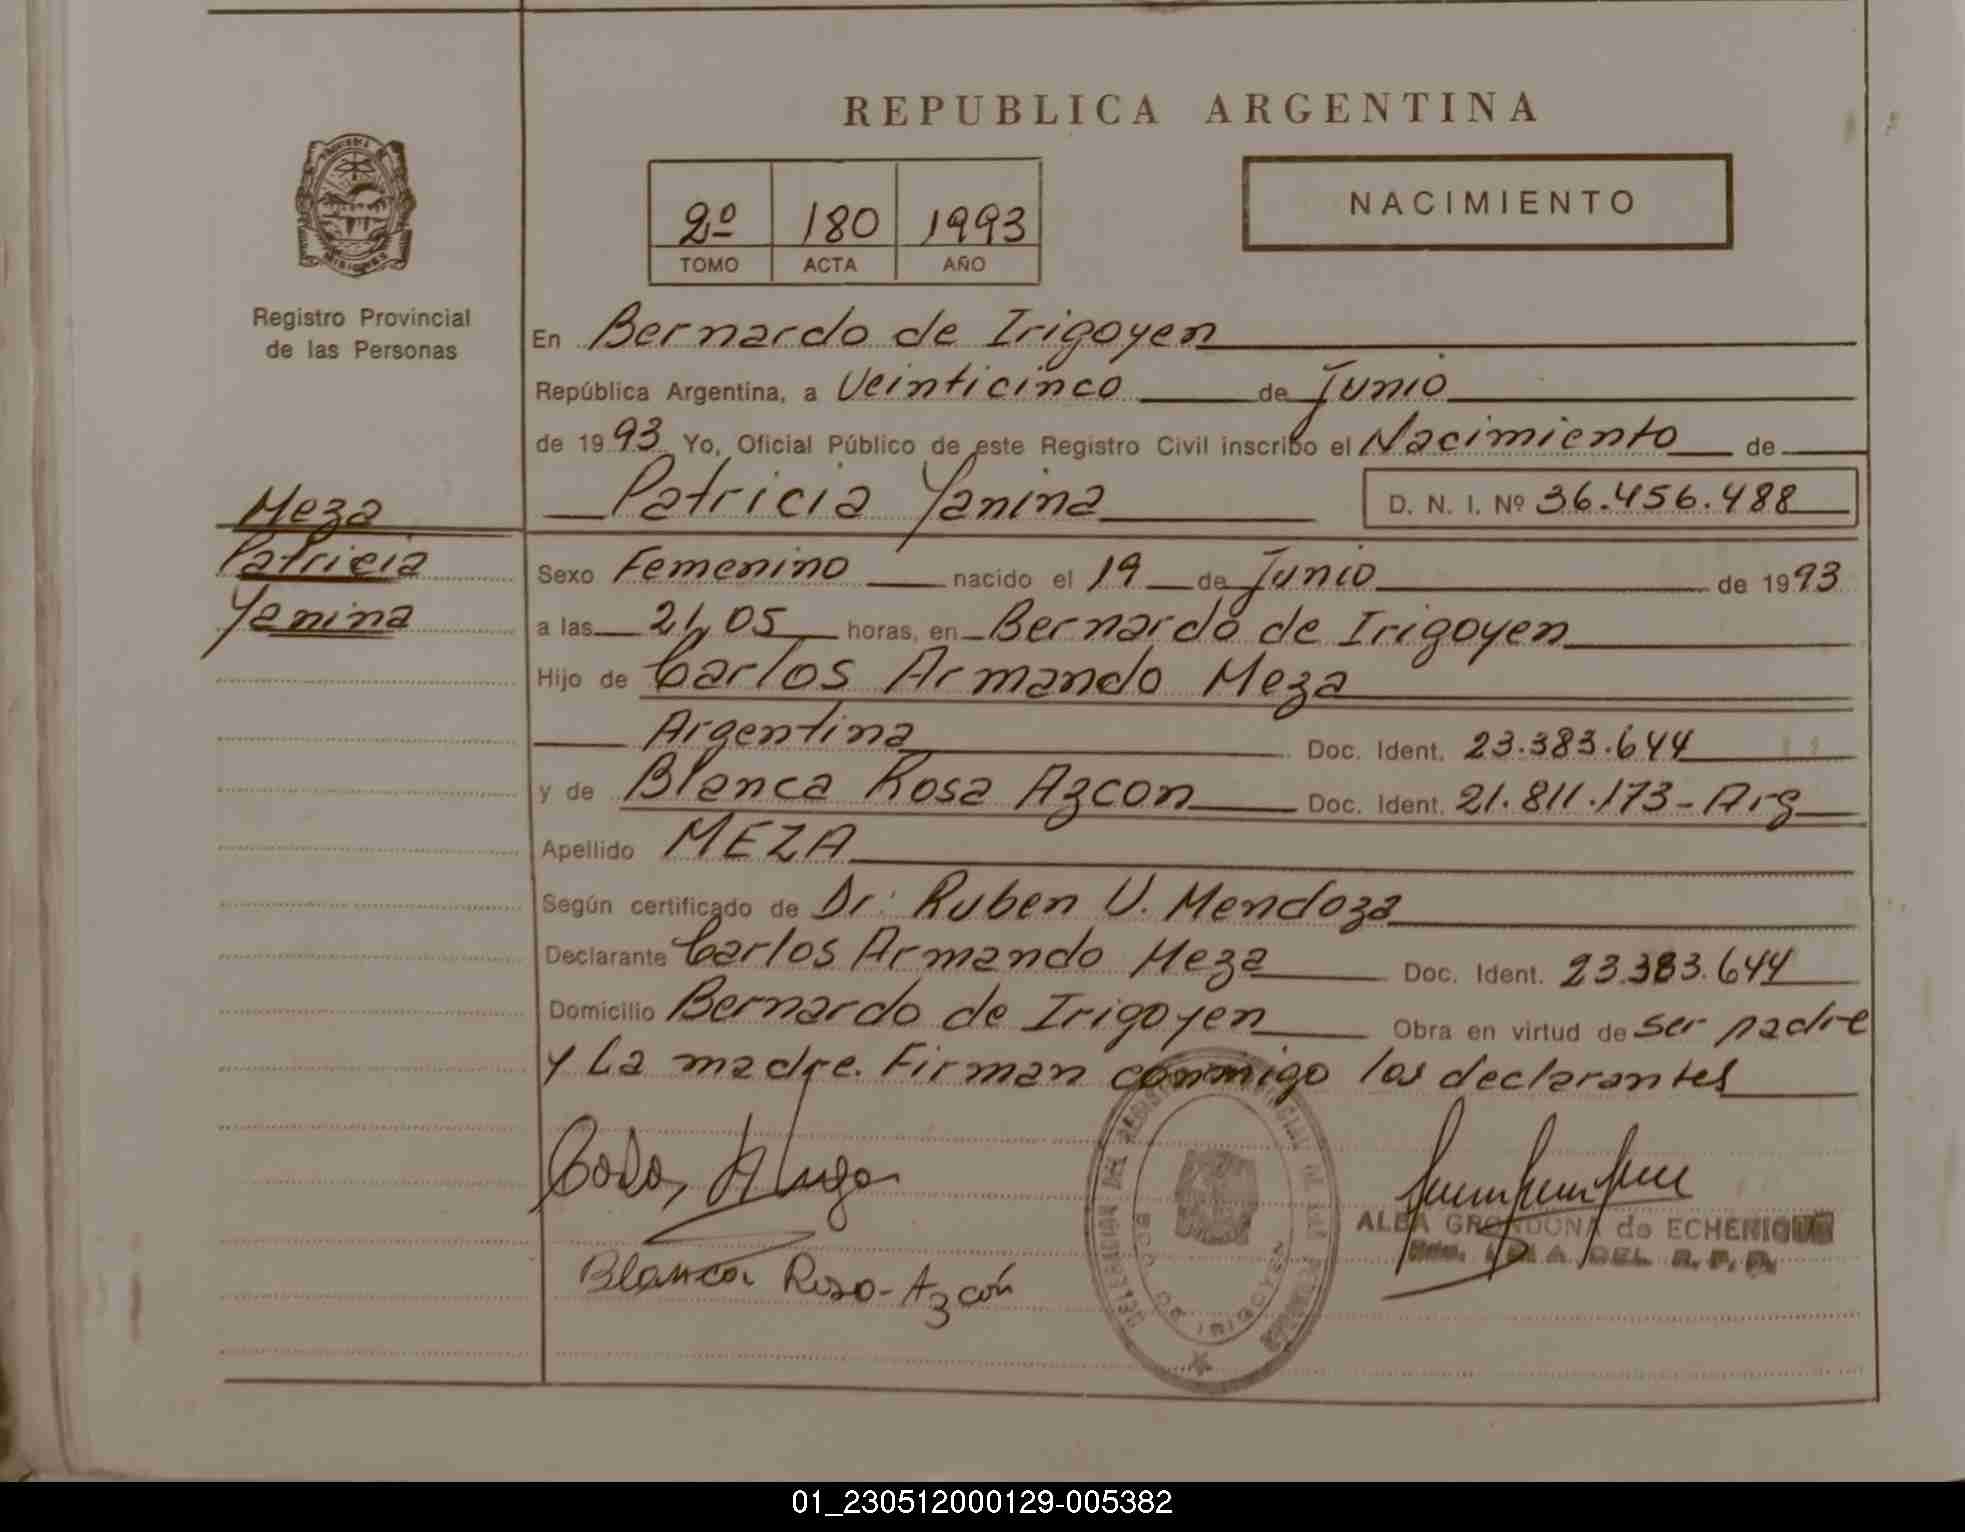 REPUBLICA ARGENTINA
PROVINCIA DE
MISIONES
Registro Provincial
de las Personas
2º 180 1993
TOMO ACTA AÑO
NACIMIENTO
En Bernardo de Irigoyen
República Argentina, a Veinticinco de Junio
de 1993 Yo, Oficial Público de este Registro Civil inscribo el Nacimiento de
Patricia Yanina D. N. I. Nº 36.456.488
Meza
Patricia
Yanina
Sexo Femenino nacido el 19 de Junio de 1993
a las 21,05 horas, en Bernardo de Irigoyen
Hijo de Carlos Armando Meza
Argentina Doc. Ident. 23.383.644
y de Blanca Rosa Azcon Doc. Ident. 21.811.173-Arg
Apellido MEZA
Según certificado de Dr. Ruben U. Mendoza
Declarante Carlos Armando Meza Doc. Ident. 23.383.644
Domicilio Bernardo de Irigoyen Obra en virtud de ser padre
y La madre. Firman conmigo los declarantes
DELEGACION DEL REGISTRO PROVINCIAL DE LAS PERSONAS
BDO. DE IRIGOYEN
ALBA GRONDONA de ECHENIQUE
DEL R. P. P.
Blanca Rosa-Azcón
01_230512000129-005382